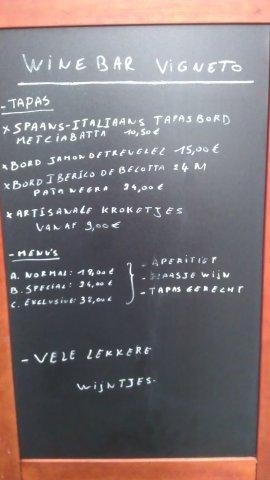 WINEBAR VIGNETO
- TAPAS
× SPAANS-ITALIAANS TAPASBORD
MET CIABATTA 10,50€
× BORD JAMON DE TREVELEL 15,00€
× BORD IBERICO DE BELOTTA 24 M
PATA NEGRA 24,00€
× ARTISANALE KROKETJES
VANAF 9,00€
- MENU'S
A. NORMAL: 18,00€
B. SPECIAL: 24,00€
C. EXCLUSIVE: 32,00€
- APERITIEF
- GLAASJE WIJN
- TAPAS GERECHT
- VELE LEKKERE
WIJNTJES.